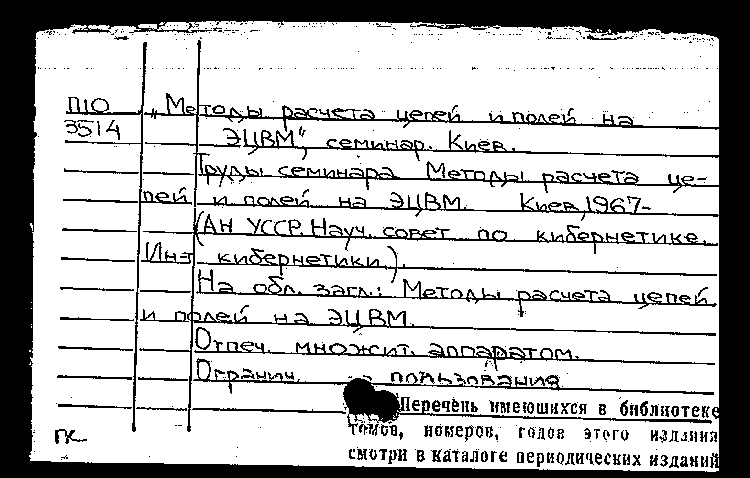 П10 „Методы расчета цепей и полей на
3514 ЭЦВМ", семинар. Киев.
Труды семинара Методы расчета це-
пей и полей на ЭЦВМ. Киев, 1967-
(АН УССР. Науч. совет по кибернетике.
Ин-т кибернетики.)
На обл. загл.: Методы расчета цепей
и полей на ЭЦВМ.
Отпеч. множит. аппаратом.
Огранич. пользования
Перечень имеющихся в библиотеке
томов, номеров, годов этого издания
смотри в каталоге периодических изданий
ГК